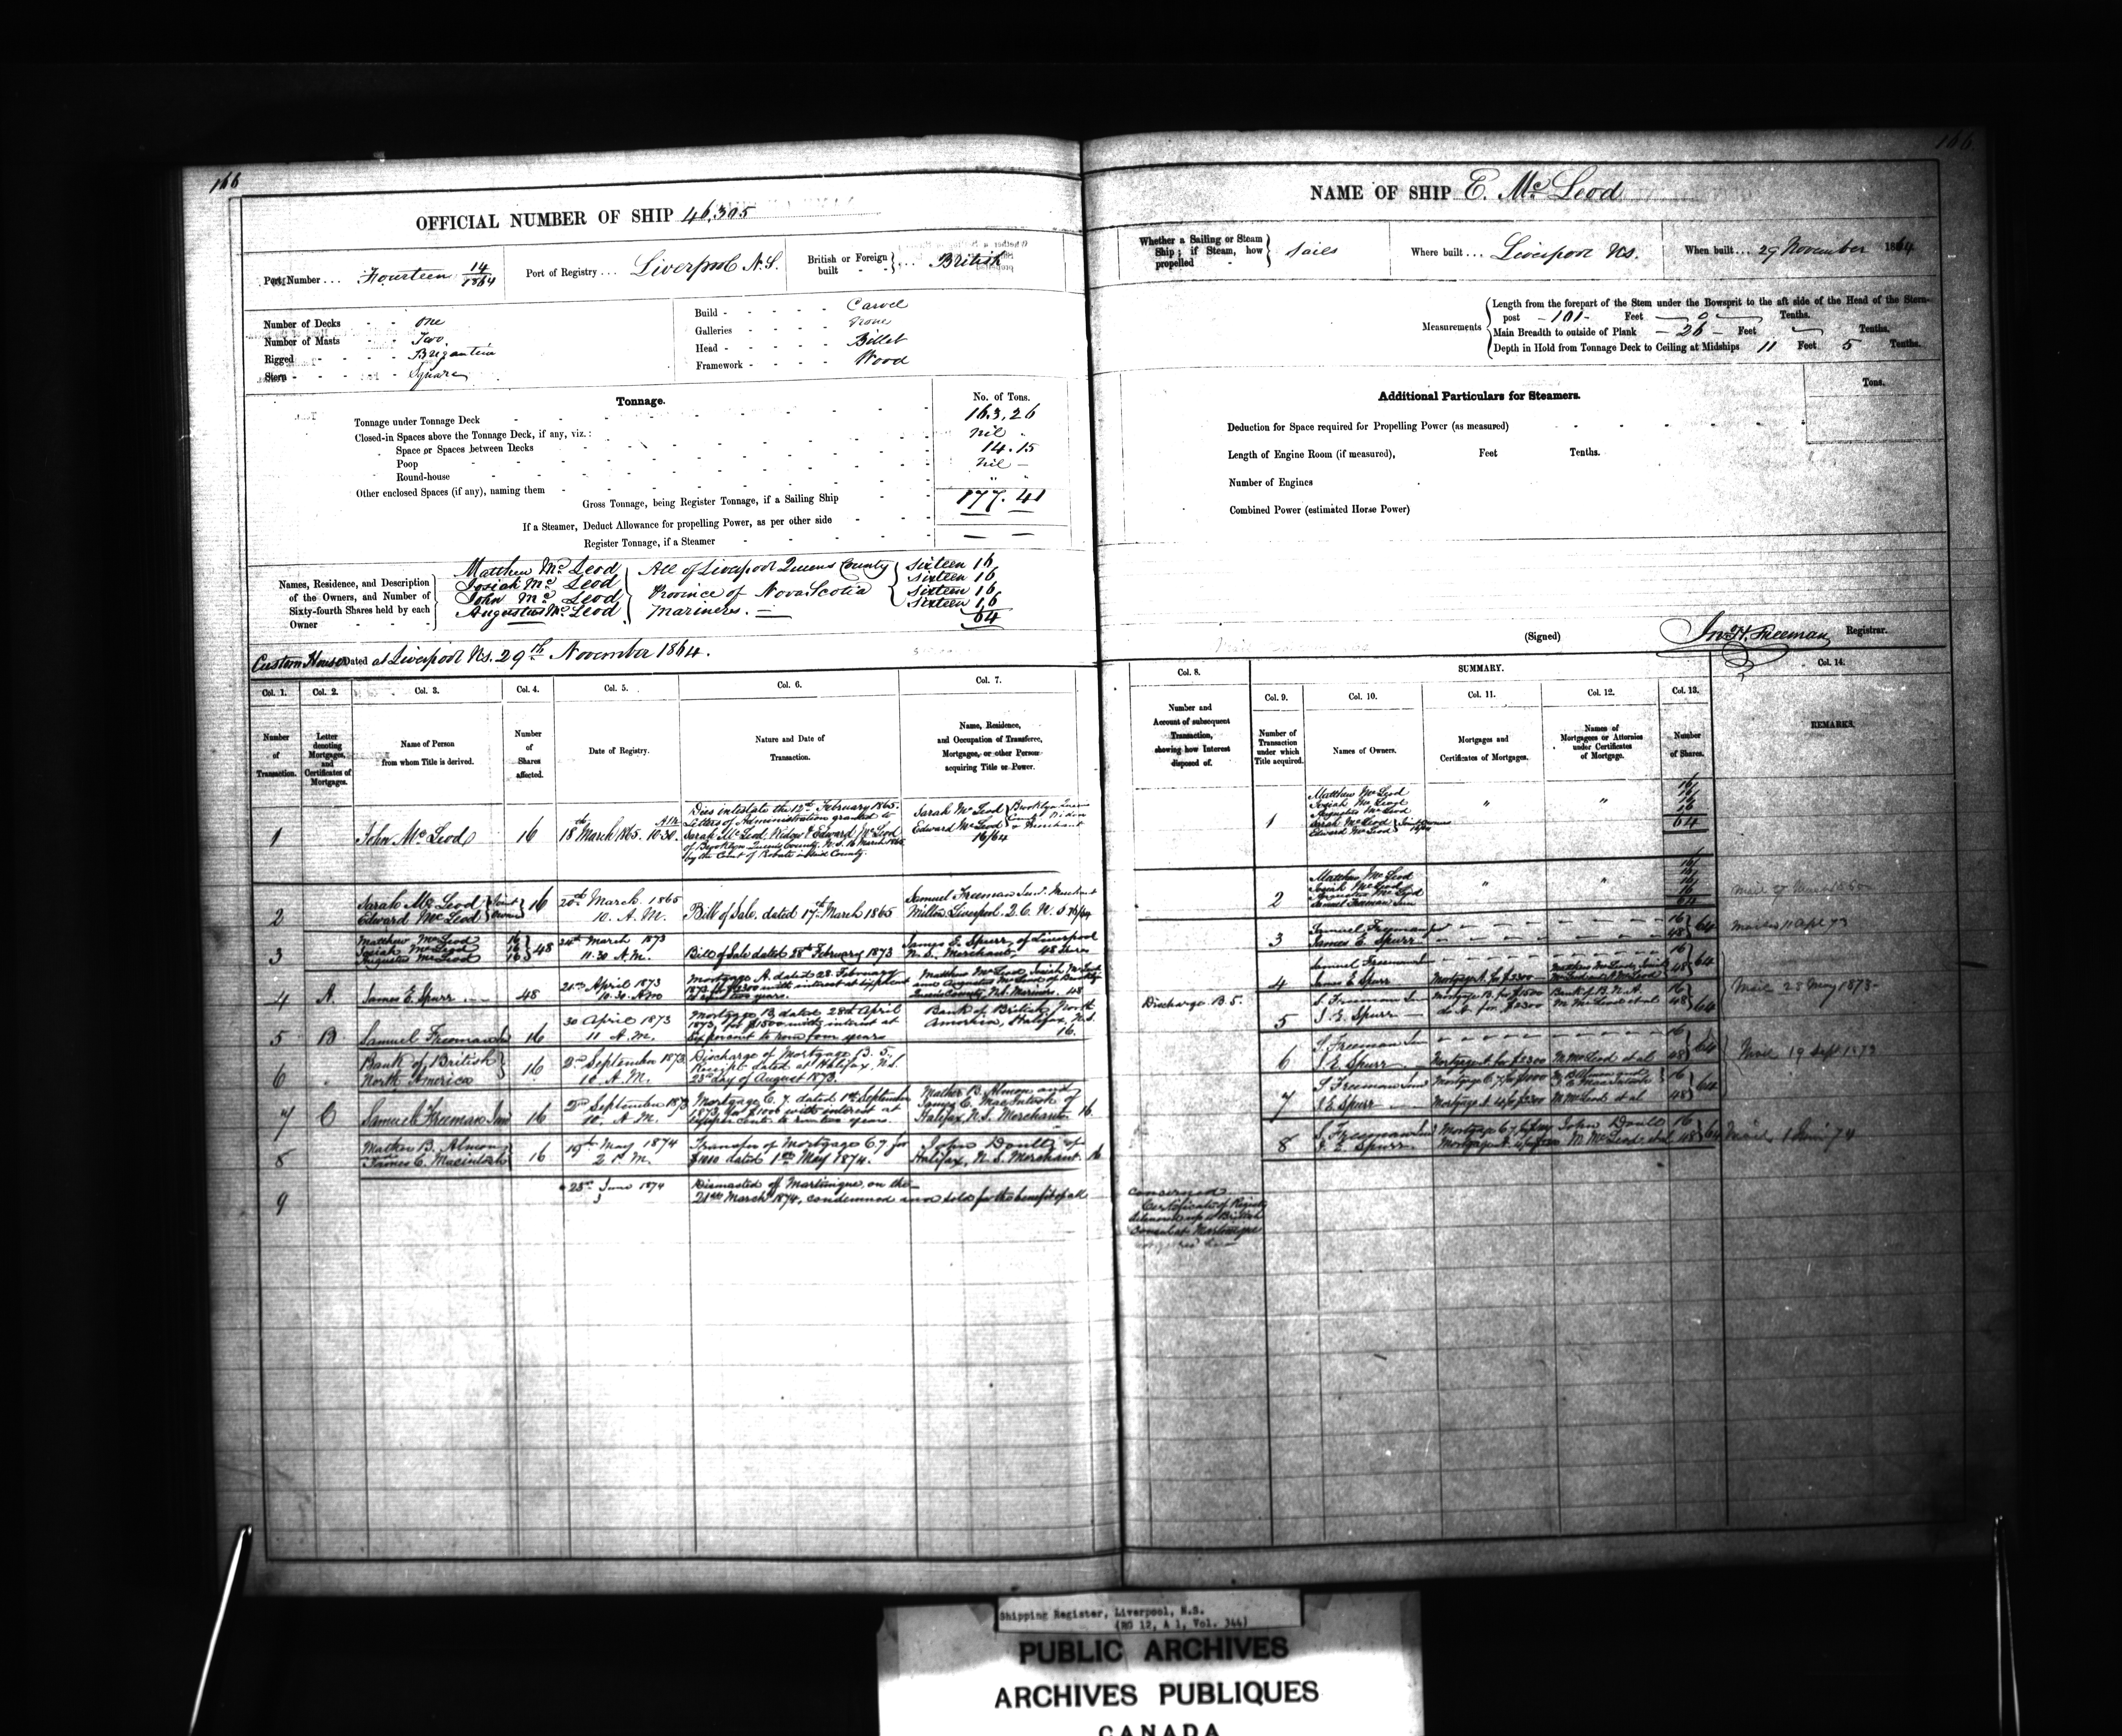 166
OFFICIAL NUMBER OF SHIP 46,305
Port Number ... Fourteen 14/1864
Port of Registry ... Liverpool N.S.
British or Foreign built - - British
Number of Decks - - One
Number of Masts - - Two
Rigged - - - - Brigantine
Stern - - - - Square
Build - - - - - Carvel
Galleries - - - - None
Head - - - - - Billet
Framework - - - - Wood
Tonnage.
No. of Tons.
Tonnage under Tonnage Deck 163,26
Closed-in Spaces above the Tonnage Deck, if any, viz.: nil
Space or Spaces between Decks 14.15
Poop nil
Round-house " "
Other enclosed Spaces (if any), naming them
Gross Tonnage, being Register Tonnage, if a Sailing Ship 177.41
If a Steamer, Deduct Allowance for propelling Power, as per other side
Register Tonnage, if a Steamer — —
Names, Residence, and Description of the Owners, and Number of Sixty-fourth Shares held by each Owner
Matthew McLeod
Josiah McLeod
John McLeod
Augustus McLeod
All of Liverpool Queens County
Province of Nova Scotia
Mariners.
Sixteen 16
Sixteen 16
Sixteen 16
Sixteen 16
64
Custom House Dated at Liverpool NS. 29th November 1864.
Col. 1. Col. 2. Col. 3. Col. 4. Col. 5. Col. 6. Col. 7.
Number of Transaction.
Letter denoting Mortgages, and Certificates of Mortgages.
Name of Person from whom Title is derived.
Number of Shares affected.
Date of Registry.
Nature and Date of Transaction.
Name, Residence, and Occupation of Transferee, Mortgagee, or other Person acquiring Title or Power.
1 John McLeod 16 18th March 1865. 10.30. AM
Dies intestate the 12th February 1865.
Letters of Administration granted to
Sarah McLeod Widow & Edward McLeod
of Brooklyn Queens County. N.S. 16 March 1865
by the Court of Probate in said County.
Sarah McLeod
Edward McLeod
Brooklyn Queens County Widow & Merchant
16/64
2 Sarah McLeod Edward McLeod Joint Owners 16
20th March 1865 10. A.M.
Bill of Sale, dated 17th March 1865
Samuel Freeman Junr Merchant
Milton Liverpool. Q.C. N.S 16/64
3 Matthew McLeod 16
Josiah McLeod 16
Augustus McLeod 16
48
24th March 1873
11.30 A.M.
Bill of Sale dated 28th February 1873
James E. Spurr, of Liverpool
N.S. Merchant, 48 Shares
4 A. James E. Spurr 48
21st April 1873
10.30 A.M.
Mortgage A. dated 28. February
1873 for $2300 with interest at six per cent
to run two years.
Matthew McLeod, Josiah McLeod
and Augustus McLeod of Brooklyn
Queens County, N.S. Mariners. 48
5 B Samuel Freeman Jr 16
30 April 1873
11 A.M.
Mortgage B, dated 28th April
1873, for $1500 with interest at
six per cent to run four years
Bank of British North
America, Halifax, N.S.
16.
6 Bank of British North America 16
2nd September 1873
10 A.M.
Discharge of Mortgage B. 5.
Receipt dated at Halifax, N.S.
23rd day of August 1873.
7 C Samuel Freeman Junr 16
2nd September 1873
10. A.M.
Mortgage C. 7. dated 1st September
1873, for $1000 with interest at
six per cent. to run two years.
Mather B. Almon and
James C. MacIntosh of
Halifax N.S. Merchants 16.
8 Mather B. Almon
James C. MacIntosh 16
19th May 1874
2 P.M.
Transfer of Mortgage C 7 for
$1000 dated 1st May 1874.
John Doull of
Halifax, N.S. Merchant. 16
9 23rd June 1874
Dismasted of Martinique, on the
21st March 1874, condemned and sold for the benefit of all
166
NAME OF SHIP E. McLeod
Whether a Sailing or Steam Ship; if Steam, how propelled - Sails
Where built ... Liverpool NS.
When built ... 29 November 1864
Measurements
Length from the forepart of the Stem under the Bowsprit to the aft side of the Head of the Stern-
post - 101 - Feet 0 Tenths.
Main Breadth to outside of Plank - 26 - Feet Tenths.
Depth in Hold from Tonnage Deck to Ceiling at Midships 11 Feet 5 Tenths.
Additional Particulars for Steamers.
Tons.
Deduction for Space required for Propelling Power (as measured)
Length of Engine Room (if measured), Feet Tenths.
Number of Engines
Combined Power (estimated Horse Power)
(Signed) Jno H. Freeman Registrar.
Col. 8.
SUMMARY.
Col. 9. Col. 10. Col. 11. Col. 12. Col. 13. Col. 14.
Number and Account of subsequent Transaction, showing how Interest disposed of.
Number of Transaction under which Title acquired.
Names of Owners.
Mortgages and Certificates of Mortgages.
Names of Mortgagees or Attornies under Certificates of Mortgage.
Number of Shares.
REMARKS.
1 Matthew McLeod 16
Josiah McLeod 16
Augustus McLeod 16
Sarah McLeod
Edward McLeod Joint Owners 16
64
2 Matthew McLeod 16
Josiah McLeod 16
Augustus McLeod 16
Samuel Freeman Junr 16
64
3 Samuel Freeman Jr 16
James E. Spurr 48
64
Mailed 11 Apl 73
4 Samuel Freeman Jr 16
James E Spurr Mortgage A. for $2300 48
64
Discharge B 5.
5 S. Freeman Jun Mortgage B. for $1500 Bank of B.N.A. 16
J. E. Spurr do A for $2300 M. McLeod et al 48
64
Mail 23 May 1873
6 S. Freeman Jun 16
J. E. Spurr Mortgage A. for $2300 M. McLeod et al 48
64
Mail 19 Sept 1873
7 S Freeman Junr Mortgage C. 7 for $1000 M. B. Almon and J. C. MacIntosh 16
J E Spurr Mortgage A. 4 for $2300 M McLeod et al 48
64
8 S. Freeman Junr Mortgage C 7 John Doull 16
J. E. Spurr Mortgage A. M. McLeod et al 48
64
concerned
Certificate of Registry
British
Consul at Martinique
Shipping Register, Liverpool, N.S.
(RG 12, A 1, Vol. 344)
PUBLIC ARCHIVES
ARCHIVES PUBLIQUES
CANADA